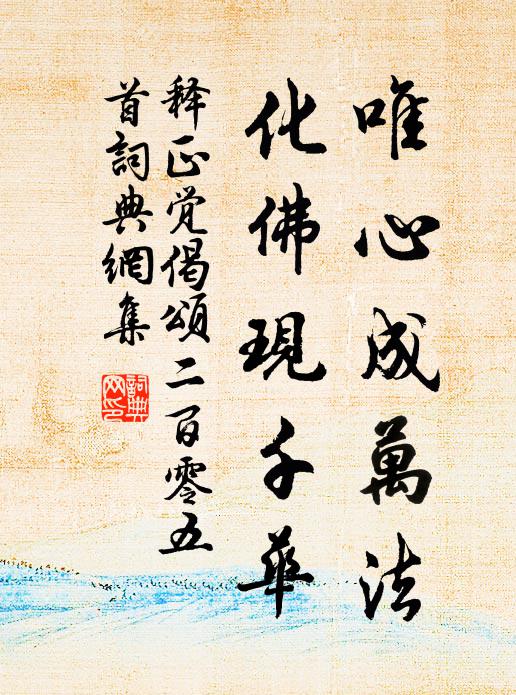 唯心成萬法
化佛現千華
释正觉偈頌二百零五
首詞典網集
詞典
网印